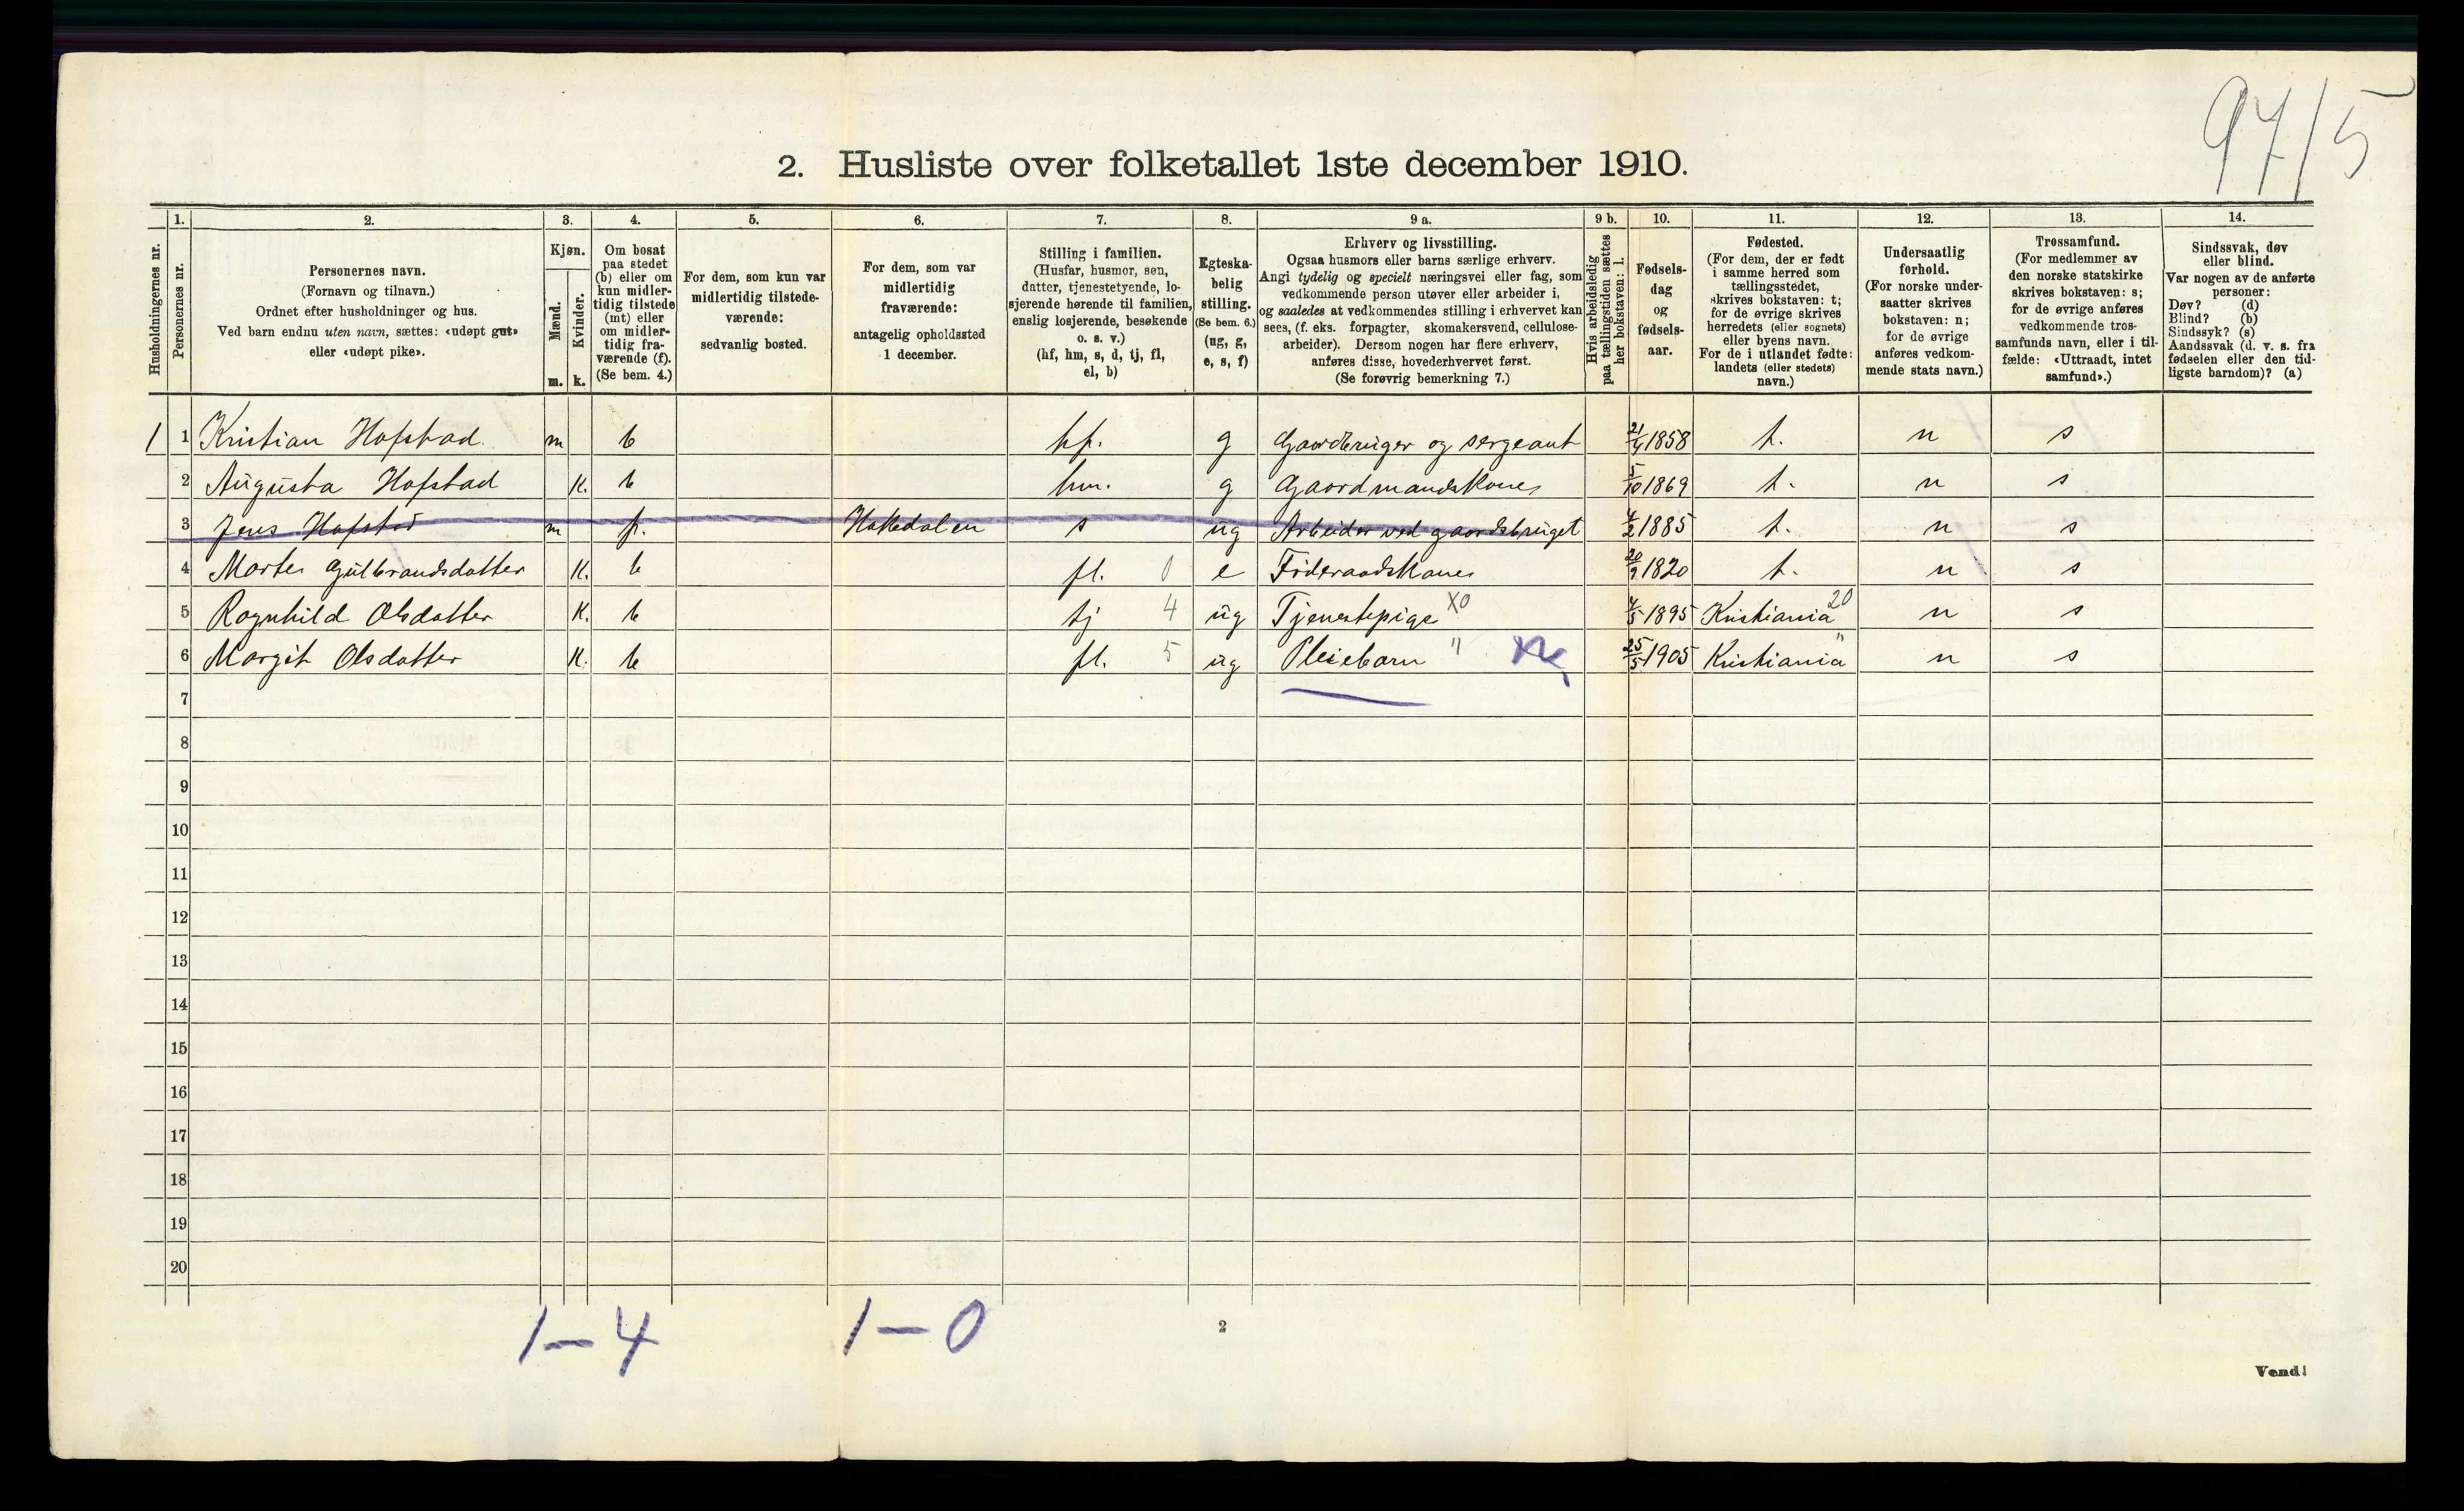 97/5
2. Husliste over folketallet 1ste december 1910.
Husholdningernes nr.
1.
Personernes nr.
2.
Personernes navn.
(Fornavn og tilnavn.)
Ordnet efter husholdninger og hus.
Ved barn endnu uten navn, sættes: «udøpt gut»
eller «udøpt pike».
3.
Kjøn.
Mænd.
Kvinder.
m. k.
4.
Om bosat
paa stedet
(b) eller om
kun midler-
tidig tilstede
(mt) eller
om midler-
tidig fra-
værende (f).
(Se bem. 4.)
5.
For dem, som kun var
midlertidig tilstede-
værende:
sedvanlig bosted.
6.
For dem, som var
midlertidig
fraværende:
antagelig opholdssted
1 december.
7.
Stilling i familien.
(Husfar, husmor, søn,
datter, tjenestetyende, lo-
sjerende hørende til familien,
enslig losjerende, besøkende
o. s. v.)
(hf, hm, s, d, tj, fl,
el, b)
8.
Egteska-
belig
stilling.
(Se bem. 6.)
(ug, g,
e, s, f)
9 a.
Erhverv og livsstilling.
Ogsaa husmors eller barns særlige erhverv.
Angi tydelig og specielt næringsvei eller fag, som
vedkommende person utøver eller arbeider i,
og saaledes at vedkommendes stilling i erhvervet kan
sees, (f. eks. forpagter, skomakersvend, cellulose-
arbeider). Dersom nogen har flere erhverv,
anføres disse, hovederhvervet først.
(Se forøvrig bemerkning 7.)
9 b.
Hvis arbeidsledig
paa tællingstiden sættes
her bokstaven: l.
10.
Fødsels-
dag
og
fødsels-
aar.
11.
Fødested.
(For dem, der er født
i samme herred som
tællingsstedet,
skrives bokstaven: t;
for de øvrige skrives
herredets (eller sognets)
eller byens navn.
For de i utlandet fødte:
landets (eller stedets)
navn.)
12.
Undersaatlig
forhold.
(For norske under-
saatter skrives
bokstaven: n;
for de øvrige
anføres vedkom-
mende stats navn.)
13.
Trossamfund.
(For medlemmer av
den norske statskirke
skrives bokstaven: s;
for de øvrige anføres
vedkommende tros-
samfunds navn, eller i til-
fælde: «Uttraadt, intet
samfund».)
14.
Sindssvak, døv
eller blind.
Var nogen av de anførte
personer:
Døv? (d)
Blind? (b)
Sindssyk? (s)
Aandssvak (d. v. s. fra
fødselen eller den tid-
ligste barndom)? (a)
1 1 Kristian Hofstad. m b hf. g Gaardbruger og sergeant 21/4 1858 t. n s
2 Augusta Hofstad K. b hm. g Gaardmandskone 5/10 1869 t. n s
3 Jens Hofstad m f. Hakedalen s ug Arbeider ved gaardsbruget 4/2 1885 t. n s
4 Marte Gulbrandsdatter K. b fl. 0 e Føderaadskone 20/9 1820 t. n s
5 Ragnhild Olsdatter K. b tj 4 ug Tjenestepige X0 4/5 1895 Kristiania 20 n s
6 Margit Olsdatter K. b fl. 5 ug Pleiebarn " 25/5 1905 Kristiania " n s
7
8
9
10
11
12
13
14
15
16
17
18
19
20
1 – 4 1 – 0
2
Vend!